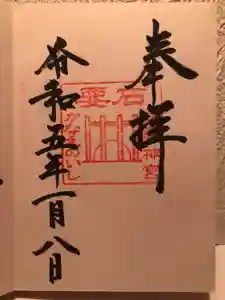 奉拝
石亜
神宮
かなめいし
令和五年一月八日